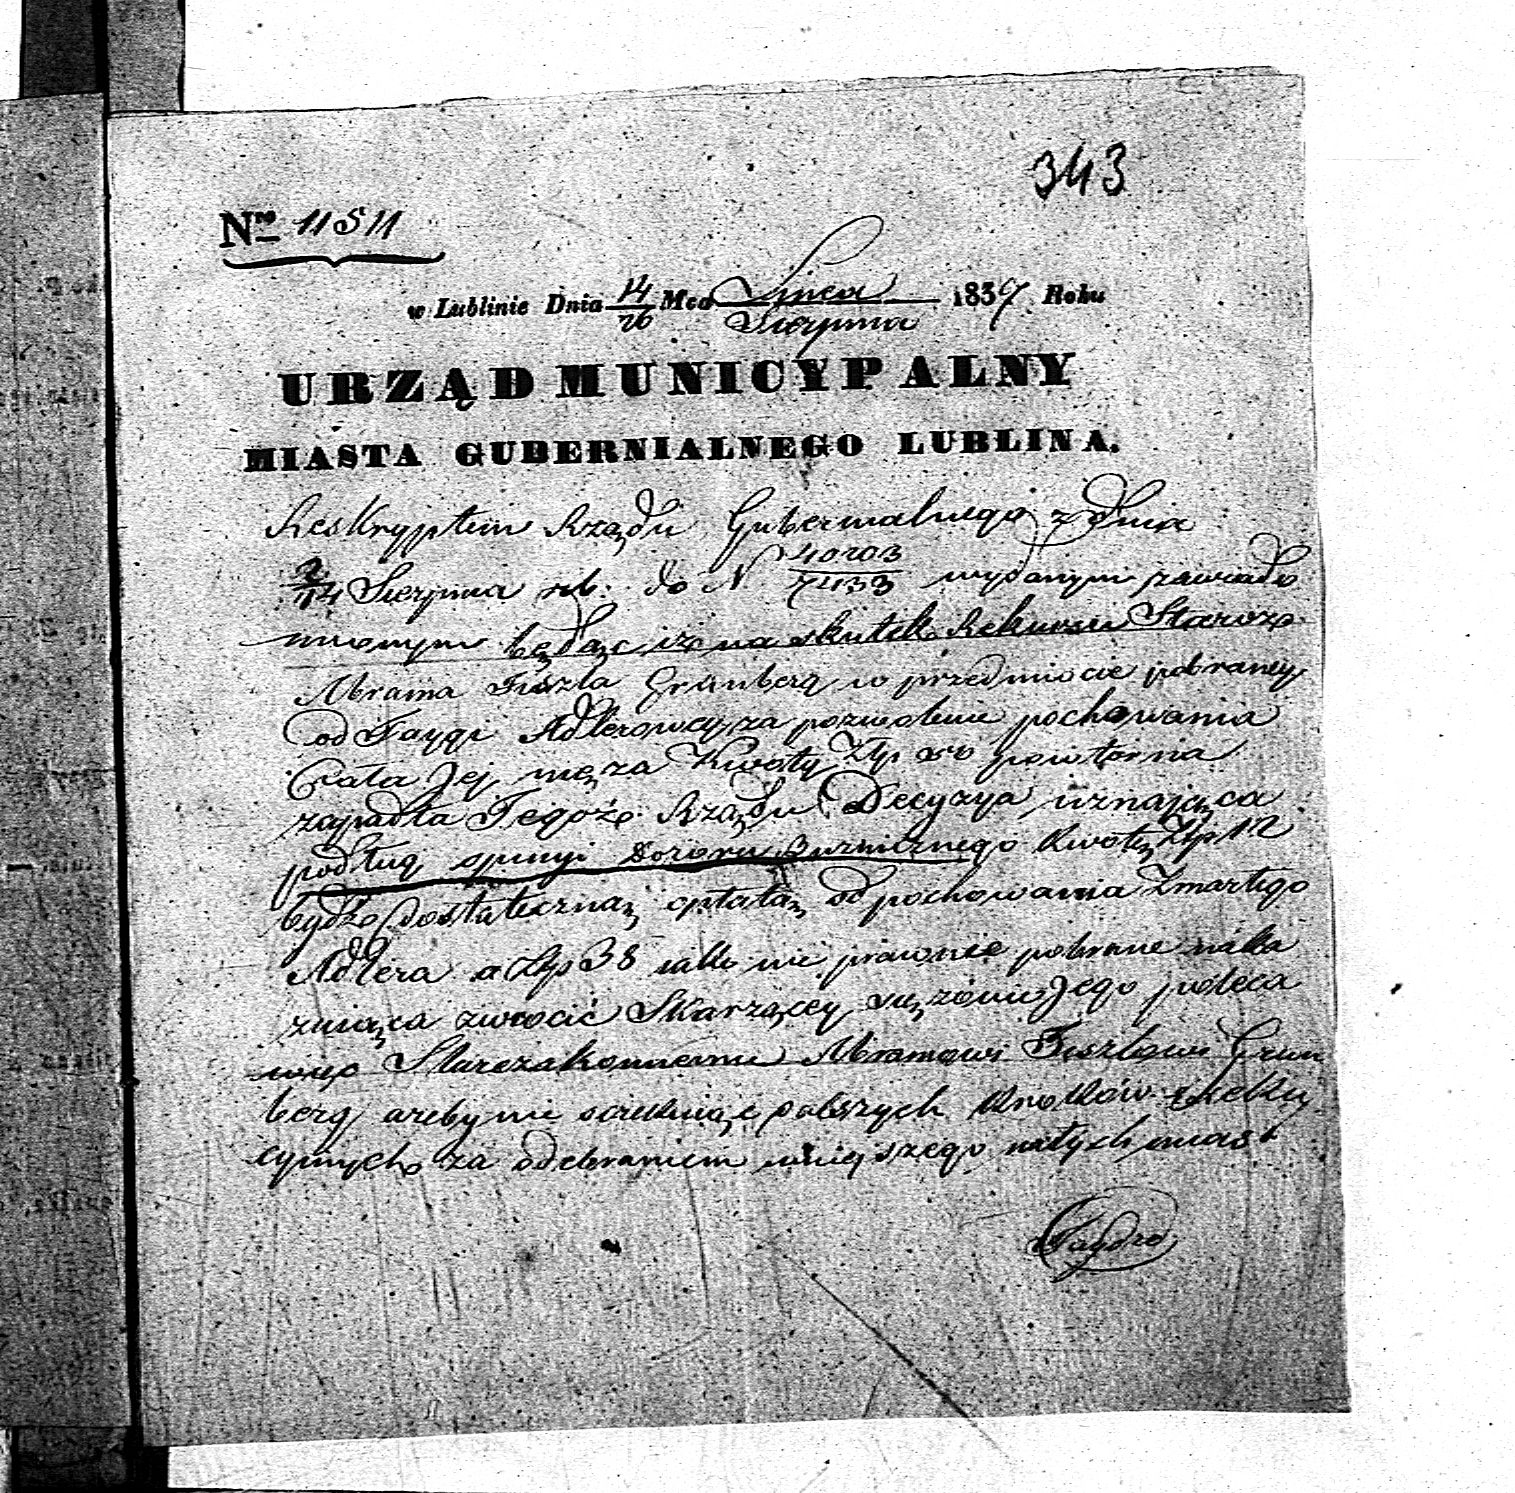 343
Nro 11511
w Lublinie Dnia 14/26 Mca Lipca/Sierpnia 1837 Roku
URZĄD MUNICYPALNY
MIASTA GUBERNIALNEGO LUBLINA.
Reskryptem Rządu Gubernialnego z dnia
2/14 Sierpnia rb: do N 40203/7433 wydanym zawiado
mionym będąc iż na skutek Rekursu Staroza
Abrama Fiszla Grünberg w przedmiocie pobraney
od Faygi Adlerowey za pozwolenie pochowania
Ciała Jej męża Kwoty Złp 50 powtórnia
zapadła Tegoże Rządu Decyzya uznająca
podług opinyi Dozoru Bużnicznego Kwotę Złp 12
bydź dostateczną opłatą od pochowania Zmarłego
Adlera a Złp 38 jako nie prawnie pobrane naka
zująca zwrócić Skarżącey się żonie Jego poleca
więc Starozakonnemu Abramowi Fiszlowi Grün
berg ażeby nie dalszych Kroków exeku
cyinych za odebraniem niniejszego natychmiast